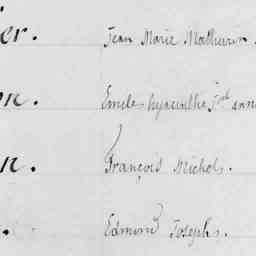 ier. Jean Marie Mathurin
on. Emile hyacinthe
n. François Michel.
. Edmond Joseph.